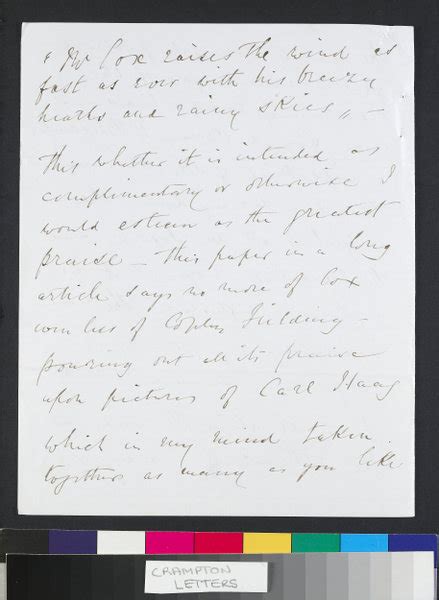 " Mr Cox raises the wind as
fast as ever with his breezy
heaths and rainy skies " —
This whether it is intended as
complimentary or otherwise I
would esteem as the greatest
praise — This paper in a long
article says no more of Cox
even less of Copley Fielding —
pouring out all its praise
upon pictures of Carl Haag
which in my mind taken
together as many as you like
CRAMPTON
LETTERS